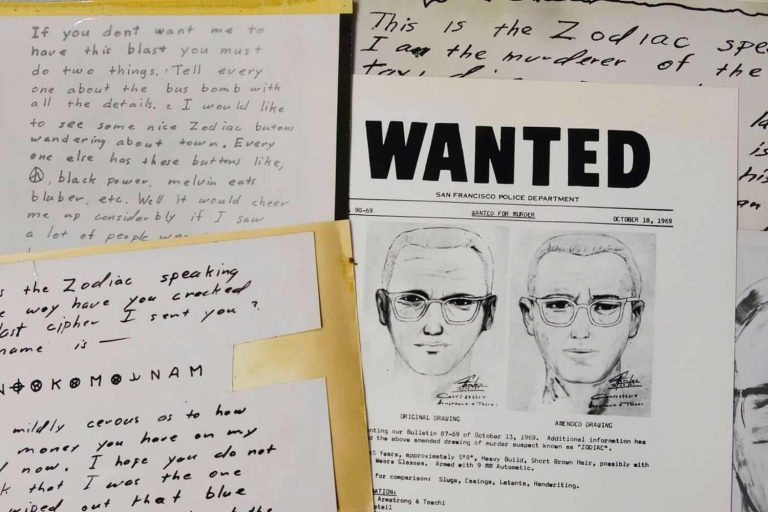 If you dont want me to
have this blast you must
do two things. 1 Tell every
one about the bus bomb with
all the details. 2 I would like
to see some nice Zodiac butons
wandering about town. Every
one else has these buttons like,
☮, black power, melvin eats
bluber, etc. Well it would cheer
me up considerbly if I saw
a lot of people
This is the Zodiac
I am the murderer of the
WANTED
SAN FRANCISCO POLICE DEPARTMENT
90-69 WANTED FOR MURDER OCTOBER 18, 1969
ORIGINAL DRAWING AMENDED DRAWING
nting our Bulletin 87-69 of October 13, 1969. Additional information has
the above amended drawing of murder suspect known as "ZODIAC".
5 Years, approximately 5'8", Heavy Build, Short Brown Hair, possibly with
Wears Glasses. Armed with 9 MM Automatic.
for comparison: Slugs, Casings, Latents, Handwriting.
ATION:
Armstrong & Toschi
etail
s the Zodiac speaking
e way have you cracked
last cipher I sent you?
name is —
N⊕⊗K⊗M⊗ NAM
mildly cerous as to how
money you have on my
now. I hope you do not
k that I was the one
wiped out that blue